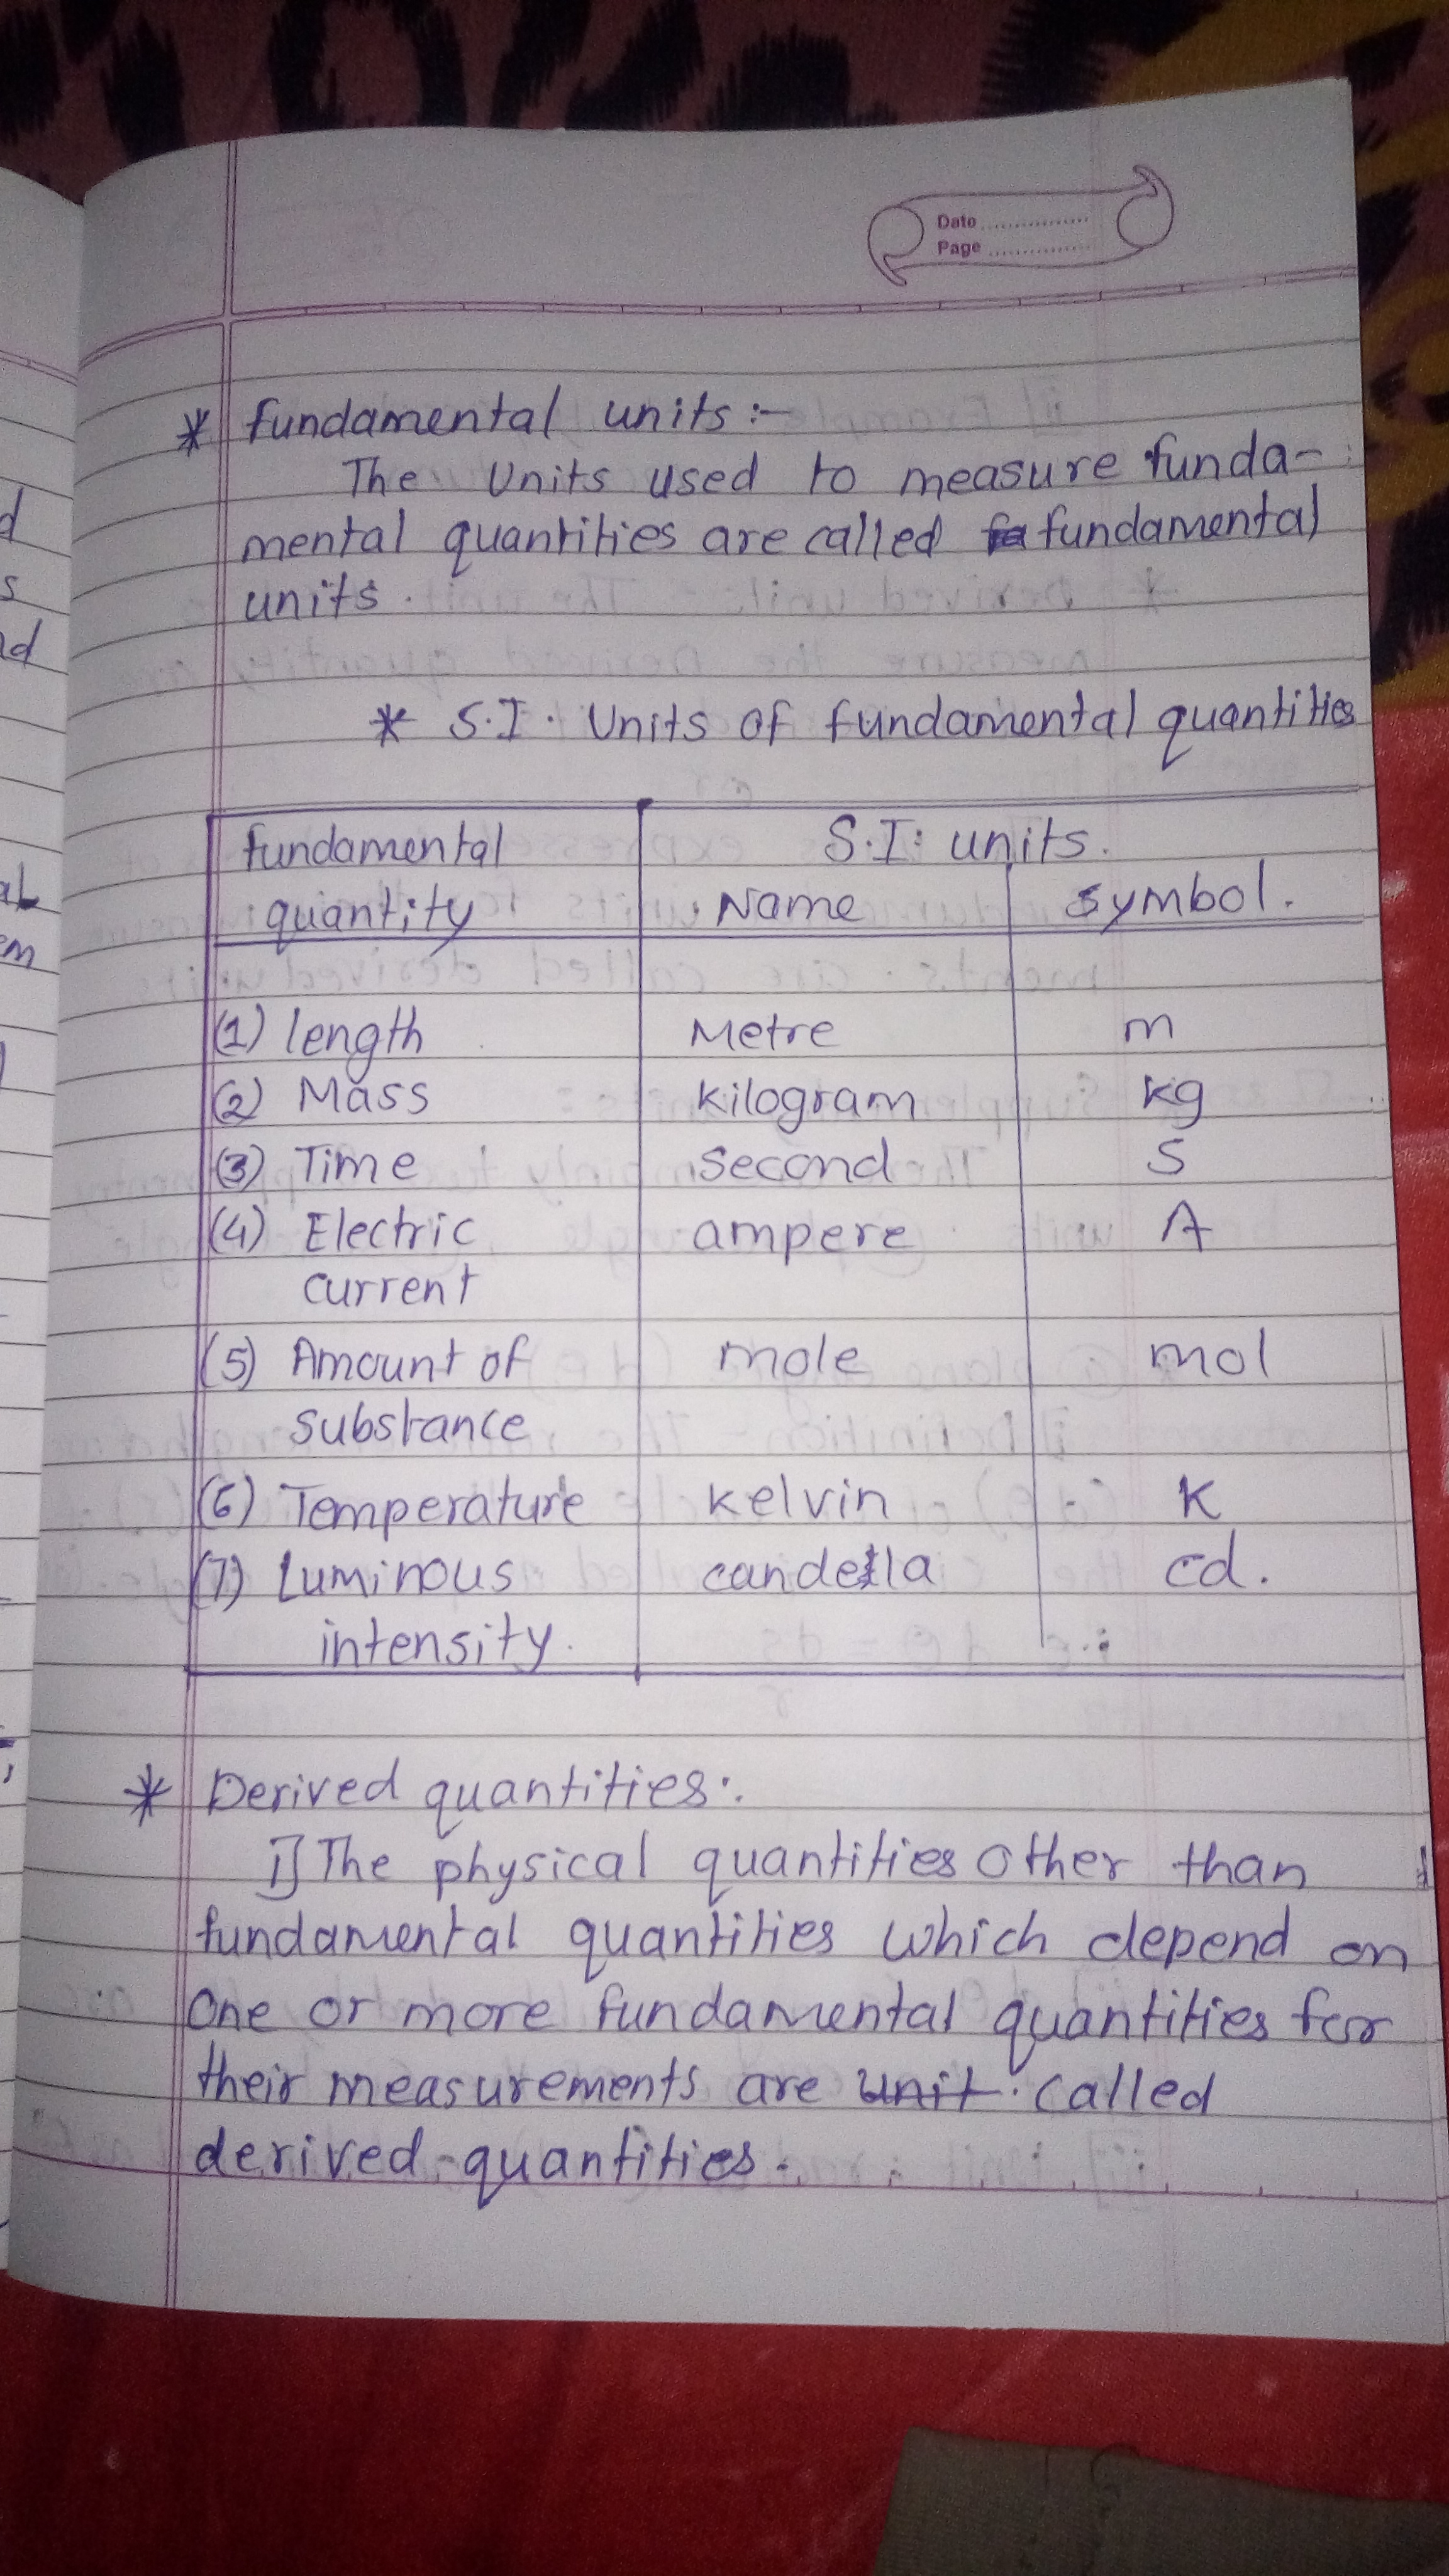 Date ...............
Page ...............
* fundamental units :-
The Units used to measure funda-
mental quantities are called fundamental
units.
* S.I. Units of fundamental quantities
fundamental S.I. units.
quantity Name symbol.
(1) length Metre m
(2) Mass kilogram kg
(3) Time second S
(4) Electric ampere A
current
(5) Amount of mole mol
substance
(6) Temperature kelvin K
(7) Luminous candela cd.
intensity.
* Derived quantities:
i] The physical quantities other than
fundamental quantities which depend on
one or more fundamental quantities for
their measurements are unit. called
derived quantities.